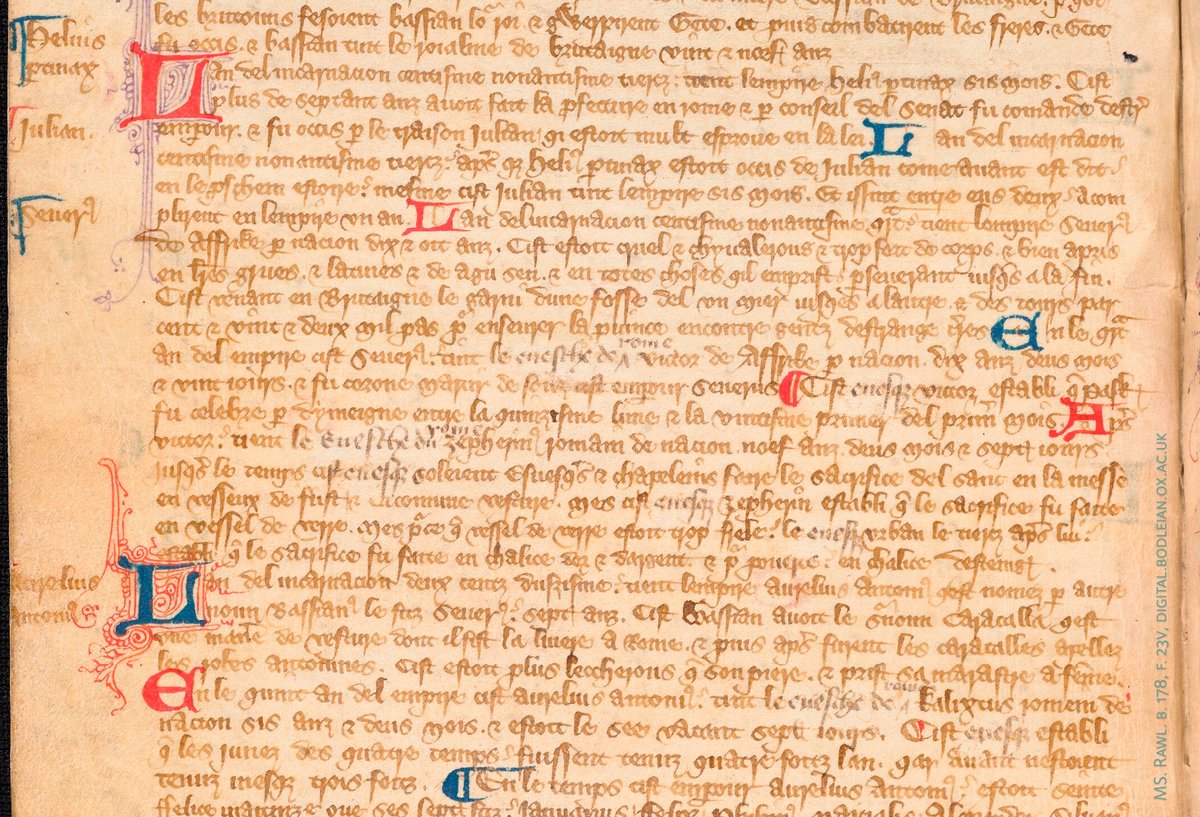 les brittouns fesoient bassian lor roi . & gwerpirent Gete . et puis combatirent les freres . & Gete
fu occis . & bassian tint le roialme de brittaigne vint & noef anz
Helius
ptinax
Lan del incarnacion centisme nonantisme tierz : tient lempire heli9 ptinax sis mois . Cist
plus de septant anz auoit fait la pfecture en rome & p conseil del Senat fu comande destr
Julian .
empour . & fu occis p le traison Julian qi estoit mult esproue en la lei Lan del incarnacion
centisme nonantisme tierz : apres qe heli9 ptinax estoit occis de Julian come auant est dit
en le pschein estorie : mesme cist Julian tint lempire sis mois . Et issint entre eus deux acom
Seuer9
plirent en lempire vn an Lan delincarnacion centisme nonantisme qrt : tient lempire Seuer9
de Affrike p nacion dix & oit anz . Cist estoit cruel & chyualerous & trop fort de corps . & bien apris
en lres grieus . & latines & de agu sen . & en totes choses qil emprist pseuerant iusqes a la fin .
Cist venant en Bruttaigne le garni dune fosse del vn mier iusqes a lautre . & des tours par
cent & vint & deux mil pas p enseurer la puince encontre gentz destrange En le qrt
an del empire cist Seuer9 : tint le euesche de rome victor de Affrike p nacion . dix anz deus mois
& vint iours . & fu corone martir de souz cist empour Seuerus ¶ Cist euesqe victor establi q Pask
fu celebre p dymeigne entre la quinzisme lune & la vintisme primer del prim mois . Apres
victor : tient le euesche de rome zepherin9 romain de nacion noef anz deus mois & sept iours
Jusqes le temps cist euesqe soleient Euesqes & chapeleins faire le sacrifice del sant en la messe
en vesseux de fust & comune vesture . mes cist euesqe zepherin establi q le sacrifice fu faite
en vessel de verre . Mes pce q vessel de verre estoit trop frele : le euesqe vrban le tierz apres lui :
establi q le sacrifice fu faite en chalice dor & dargent . & p pouerte : en chalice desteing .
Aurelius
Antoni9
Lan del incarnacion deux centz duszisme : tient lempire aurelius Antoni9 qest nomez p autre
noun Bassian9 le fitz Seuer9 : sept anz . Cist Bassian auoit le srnoun Caracalla qest
vne manere de vesture dont il fist la liuere a Rome . & puis apres furent les caracalles apellez
les robes antonines . Cist estoit plus leccherous q son piere . & prist sa marastre a feme .
En le quint an del empire cist aurelius antoni9 : tint le euesche de rome Kalixtus romein de
nacion sis anz & deus mois . & estoit le see vacant sept iours . Cist euesqe establi
q les junes des quatre temps fuissent tenuz quatre foitz lan . qar auant nestoient
tenuz mesqe trois foitz . ¶ En le temps cist empour aurelius Antoni9 : estoit seinte
MS. RAWL. B. 178, F. 23V, DIGITAL.BODLEIAN.OX.AC.UK